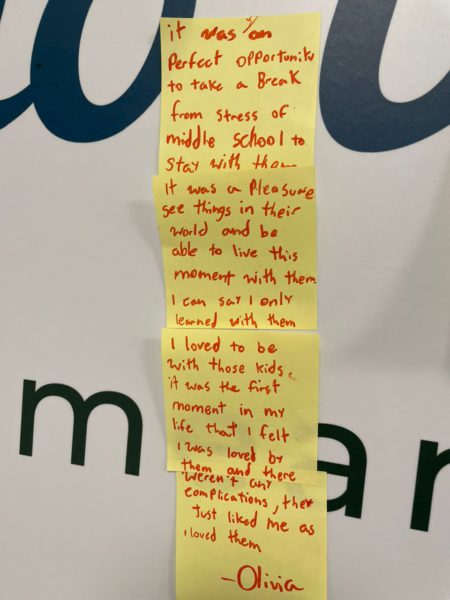 it was an
Perfect opportunity
to take a Break
from stress of
middle school to
stay with them
It was a Pleasure
see things in their
world and be
able to live this
moment with them
I can say I only
learned with them
I loved to be
with those kids.
it was the first
moment in my
life that I felt
I was loved by
them and there
weren't any
complications, they
Just liked me as
i loved them
-Olivia
m
ar